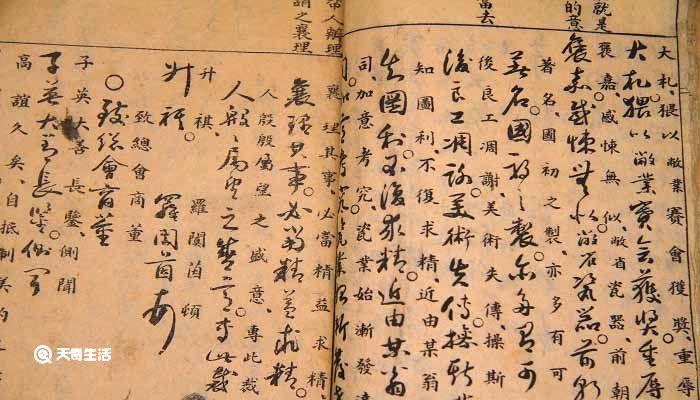 就是
的意
當去
大札。猥以敝業賽會獲獎。重辱
大札。猥以敝業賽會獲獎重辱
褒嘉。感悚無似。敝省瓷器。前朝
褒嘉感悚無似敝省瓷器前朝
著名。國初之製。亦多有可
著名國初之製。亦多有可
後良工凋謝。美術失傳。操斯
後良工凋謝美術失傳操斯
知圖利。不復求精。近由某翁
知圖利不復求精近由某翁
司。加意考究。瓷業始漸發達
人辦理
謂之襄理
襄理其事。必當精益求精
襄理其事。必當精益求精
人殷殷屬望之盛意。專此裁
人殷殷屬望之盛意專此裁
升祺。羅閬茵頓
升祺 羅閬茵頓
致總會商董
致總會商董
子英大善長鑒側聞
子英大善長鑒側聞
高誼久矣。自抵制美約
天奇生活